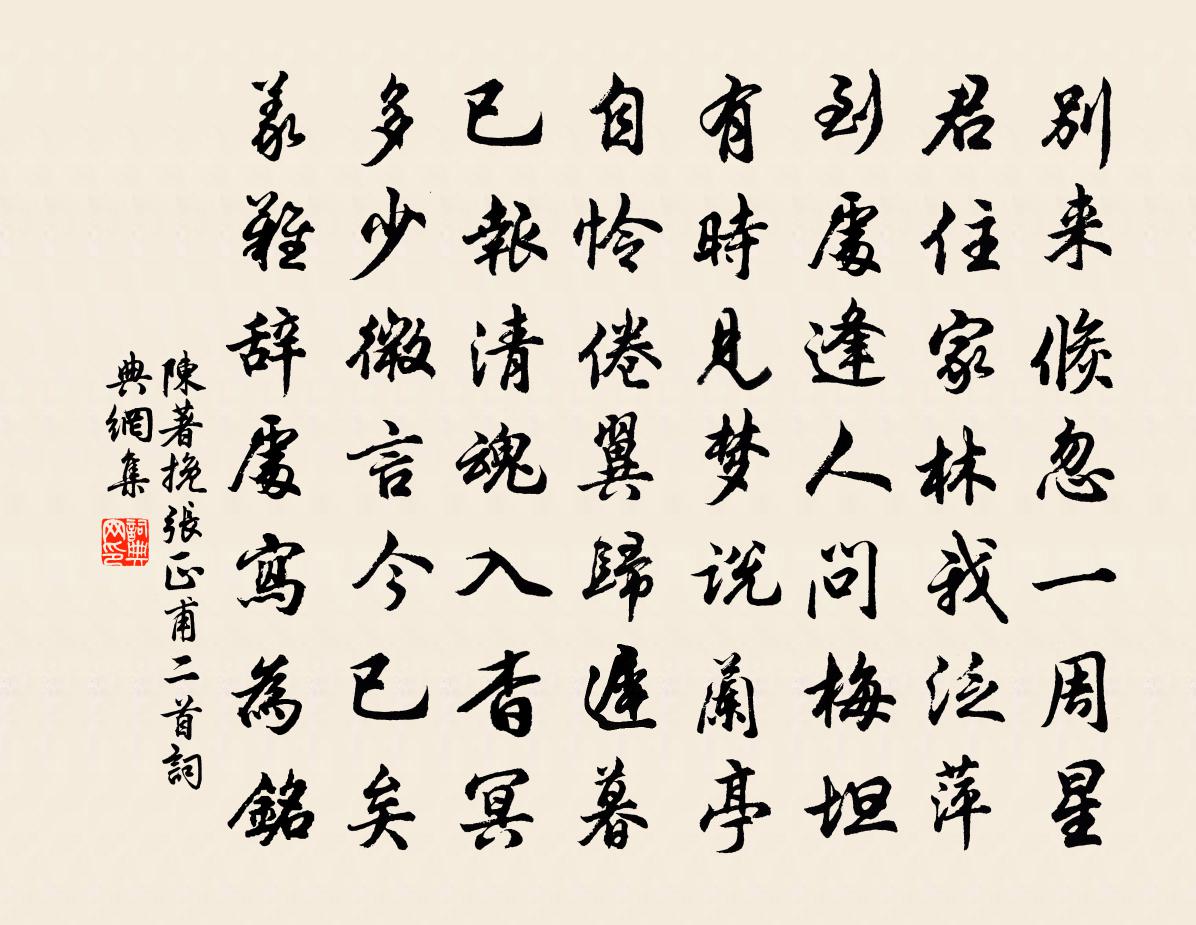 別来倐忽一周星
君住家林我泛萍
到處逢人問梅坦
有時見梦说蘭亭
自怜倦翼歸遲暮
已報清魂入杳冥
多少微言今已矣
義難辞處寫為銘
陳著挽張正甫二首詞
典網集
詞典
网印